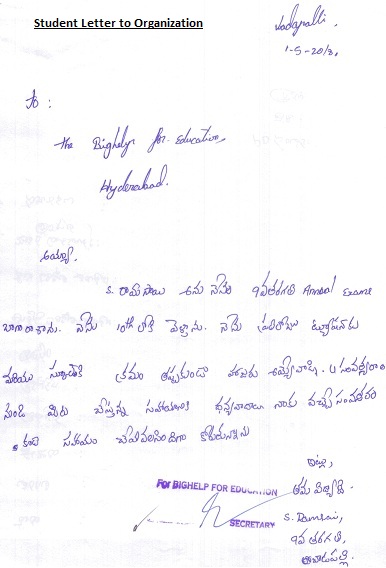 Student Letter to Organization
వadapalli.
1-5-2013.
To:
The Bighelp for Education,
Hyderabad.
అయ్యా.
S. రామ్ సాయి అను నేను 9వ తరగతి Annual Exams
బాగా రాశాను. నేను 10th లోకి వెళ్లాను. నేను ప్రతిరోజు ట్యూషన్ కు
మరియు స్కూల్ కి క్రమం తప్పకుండా హాజరు అయ్యేవాణ్ణి. 4 సంవత్సరాల
నుండి మీరు చేస్తున్న సహాయానికి ధన్యవాదాలు నాకు వచ్చే సంవత్సరం
కూడా సహాయం చేయవలసిందిగా కోరుతున్నాను
ఇట్లు,
తమ విద్యార్థి
For BIGHELP FOR EDUCATION
SECRETARY
S. Ramsai,
9వ తరగతి,